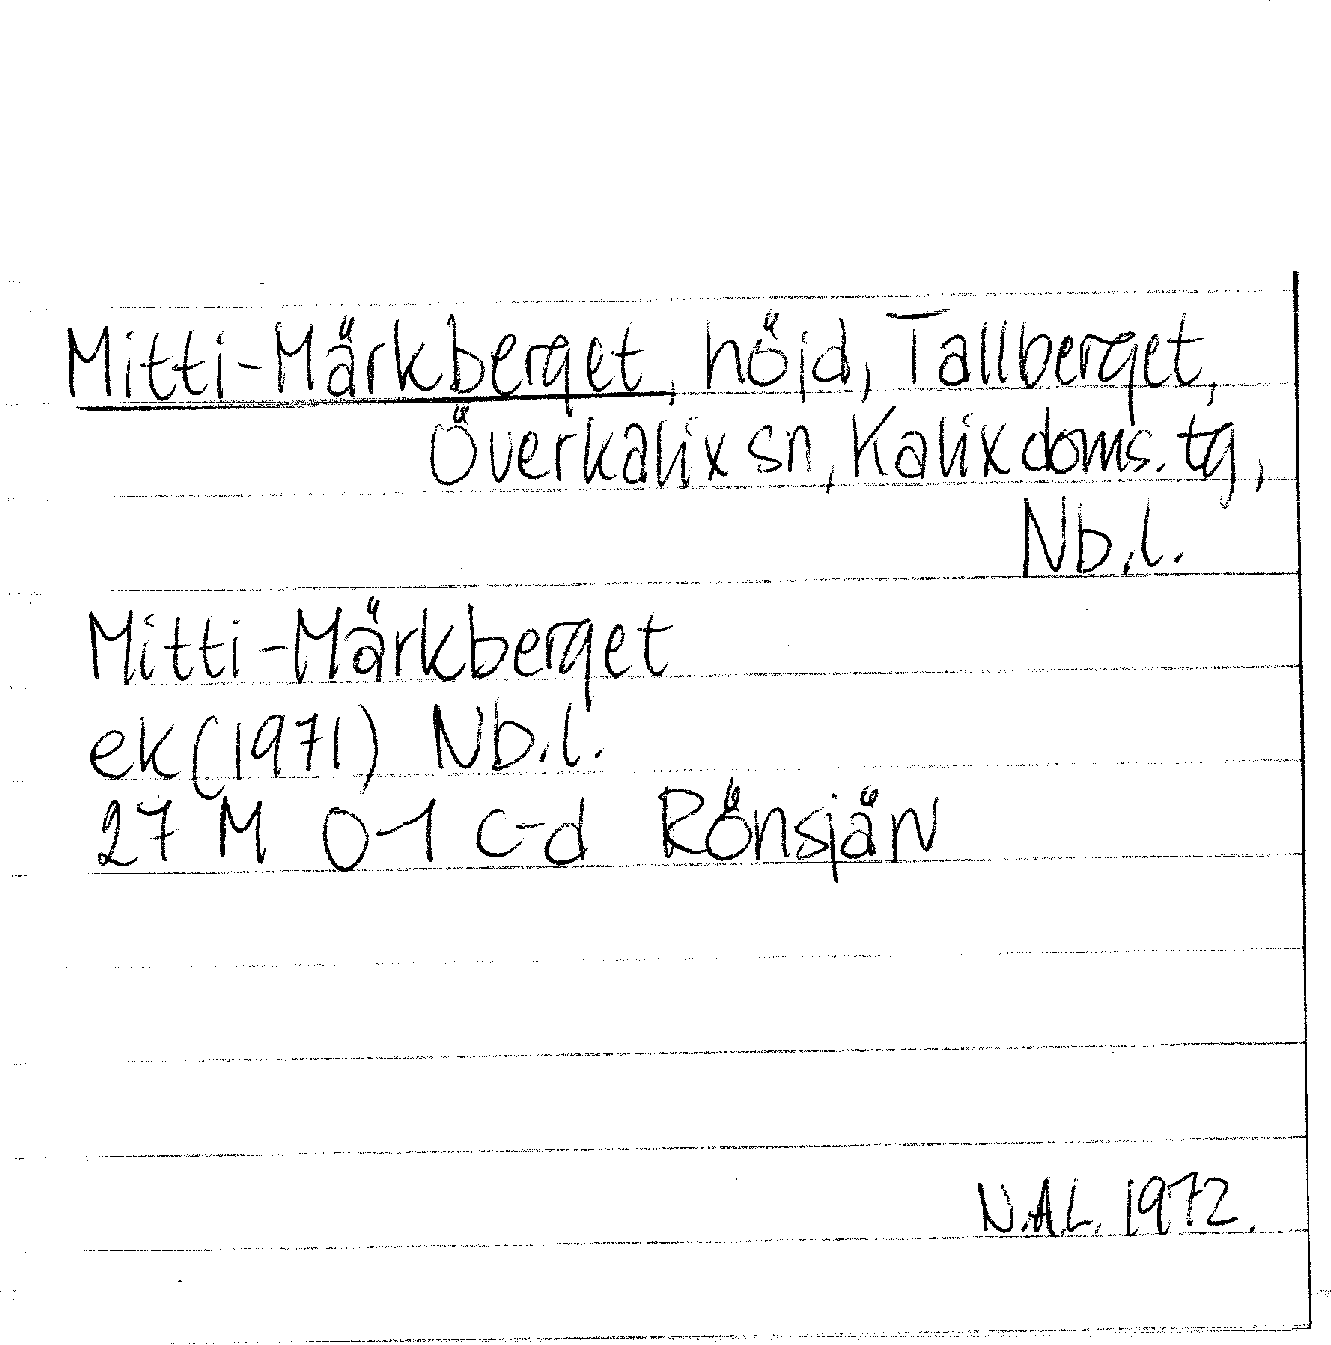 Mitti-Märkberget, höjd, Tallberget,
Överkalix sn, Kalix doms. tg,
Nb.l.
Mitti-Märkberget
ek (1971) Nb.l.
27 M 0-1 c-d Rönsjän
N.A.L. 1972.